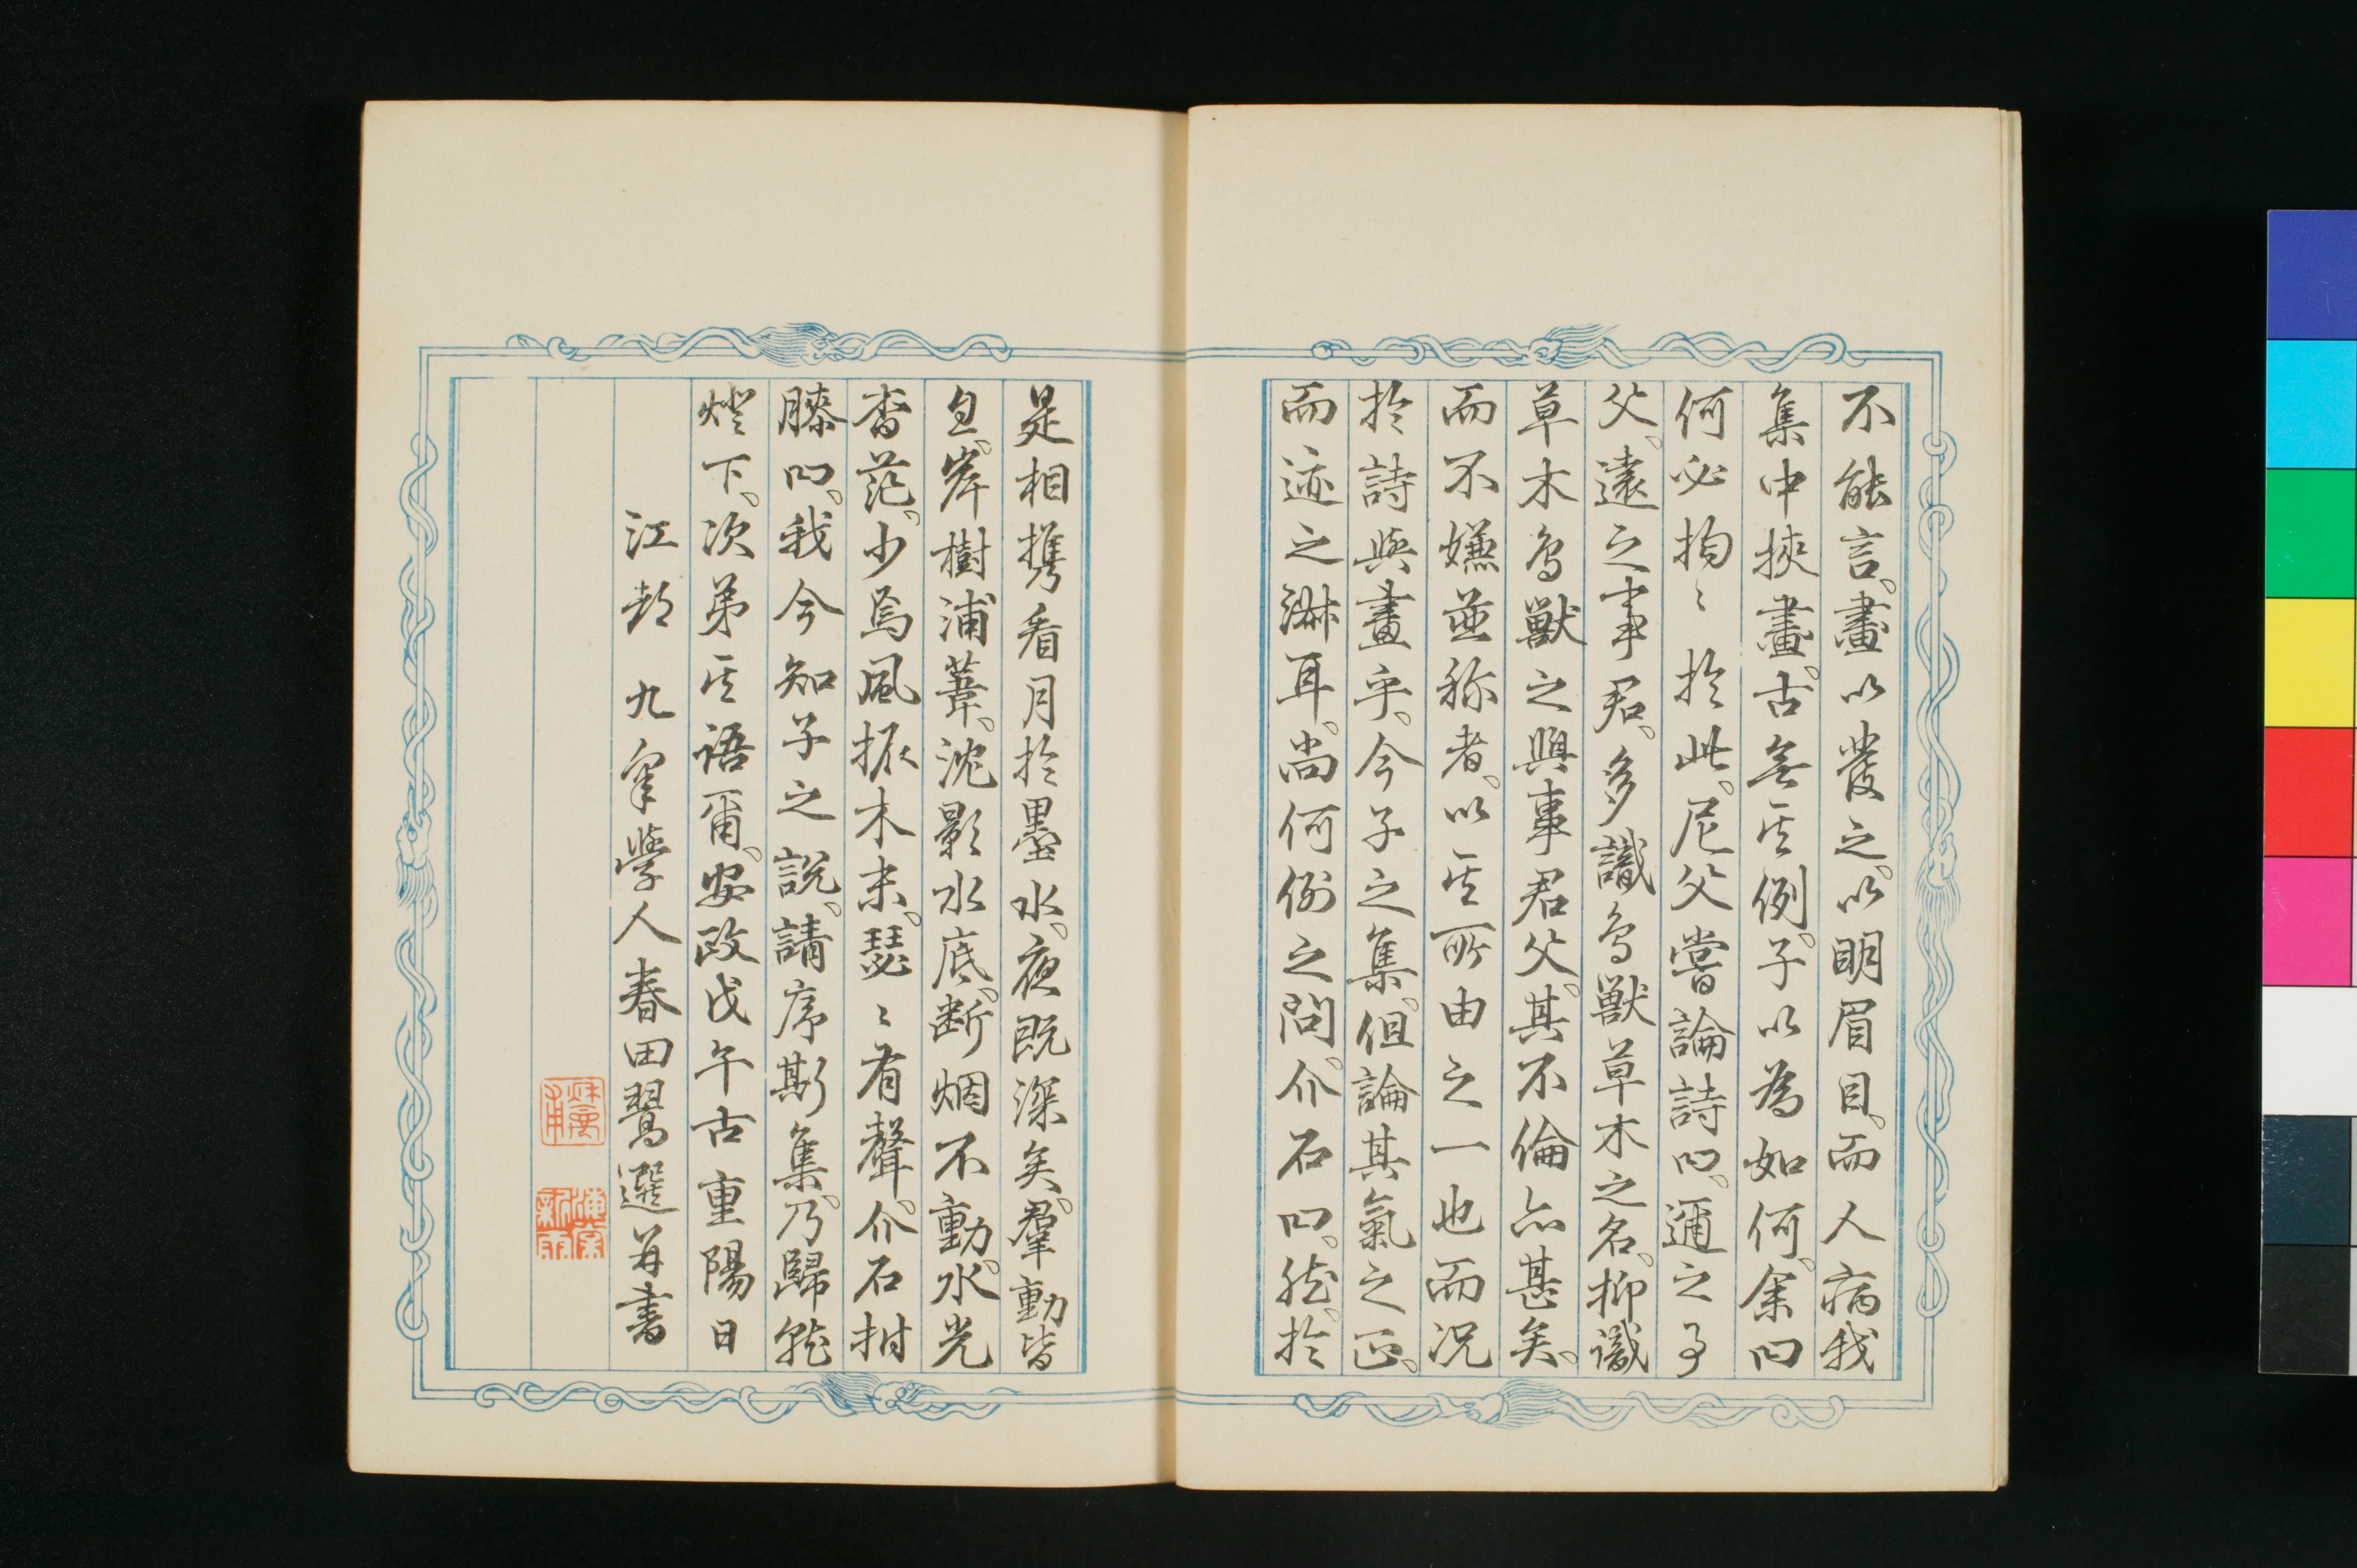 不能言。畫以發之。以明眉目。而人病我
集中挾畫。古無其例。子以為如何。余曰
何必拘〻於此。尼父嘗論詩曰。邇之事
父。遠之事君。多識鳥獸草木之名。抑識
草木鳥獸之與事君父。其不倫亦甚矣。
而不嫌並称者。以其所由之一也而況
於詩與畫乎。今子之集。但論其氣之正。
而迹之淋耳。尚何例之問。介石曰。然。於
是相携看月於墨水。夜既深矣。羣動皆
息。岸樹浦葦。沈影水底。断烟不動。水光
杳茫。少焉風振木末。瑟〻有聲。介石拊
膝曰。我今知子之説。請序斯集。乃歸就
燈下。次第其語爾。安政戊午古重陽日
江都 九皐學人春田翯選并書